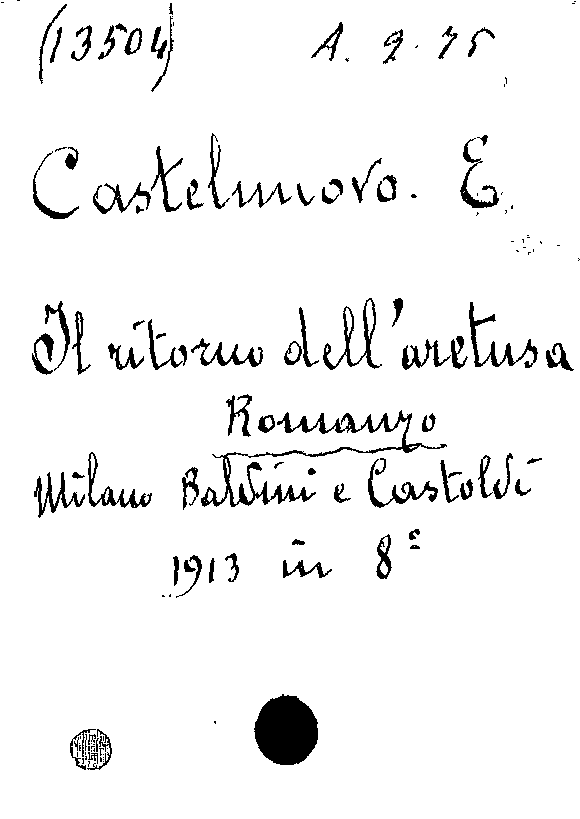 (13504) A. 9. 75
Castelnuovo. E
Il ritorno dell'aretusa
Romanzo
Milano Baldini e Castoldi
1913 in 8º